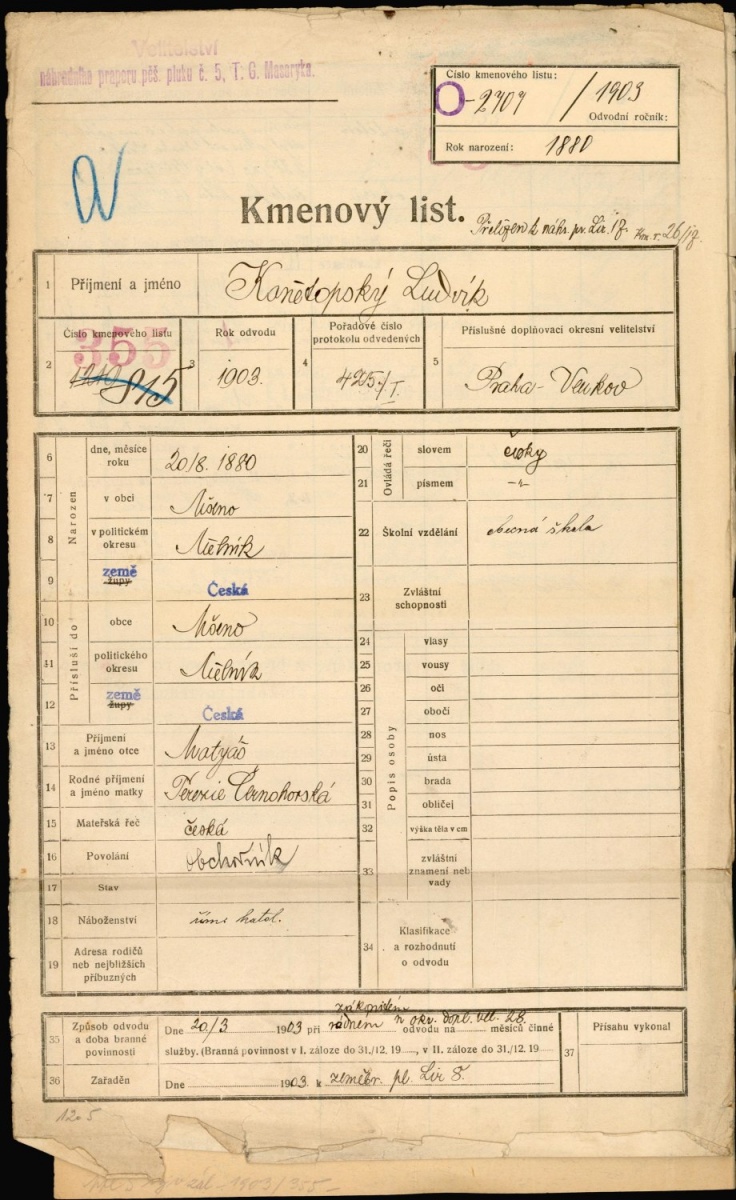 Velitelství
náhradního praporu pěš. pluku č. 5, T. G. Masaryka.
Číslo kmenového listu:
O-2707 / 1903
Odvodní ročník:
Rok narození: 1880
Kmenový list.
Přeložen k náhr. pr. Lir. 17. Km. č. 26/17.
1 Příjmení a jméno Konětopský Ludvík
2 Číslo kmenového listu 355 1210 815
3 Rok odvodu 1903.
4 Pořadové číslo protokolu odvedených 425./I.
5 Příslušné doplňovací okresní velitelství Praha-Venkov
Narozen
6 dne, měsíce roku 20/8. 1880
7 v obci Mšeno
8 v politickém okresu Mělník
9 země župy Česká
Přísluší do
10 obce Mšeno
11 politického okresu Mělník
12 země župy Česká
13 Příjmení a jméno otce Matyáš
14 Rodné příjmení a jméno matky Terezie Černohorská
15 Mateřská řeč česká
16 Povolání obchodník
17 Stav
18 Náboženství říms. katol.
19 Adresa rodičů neb nejbližších příbuzných
Ovládá řeči
20 slovem česky
21 písmem -"-
22 Školní vzdělání obecná škola
23 Zvláštní schopnosti
Popis osoby
24 vlasy
25 vousy
26 oči
27 obočí
28 nos
29 ústa
30 brada
31 obličej
32 výška těla v cm
33 zvláštní znamení neb vady
34 Klasifikace a rozhodnutí o odvodu
35 Způsob odvodu a doba branné povinnosti
Dne 20/3 1903 při řádném u okr. dopl. vel. 28. odvodu na měsíců činné
služby. (Branná povinnost v I. záloze do 31./12. 19 , v II. záloze do 31./12. 19
36 Zařaděn Dne 1903. k zeměbr. pl. Lir 8.
37 Přísahu vykonal
1205
1903/355